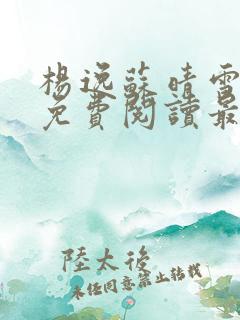 楊逸蘇晴雪
免費閱讀最
陸太後
未经同意禁止转载